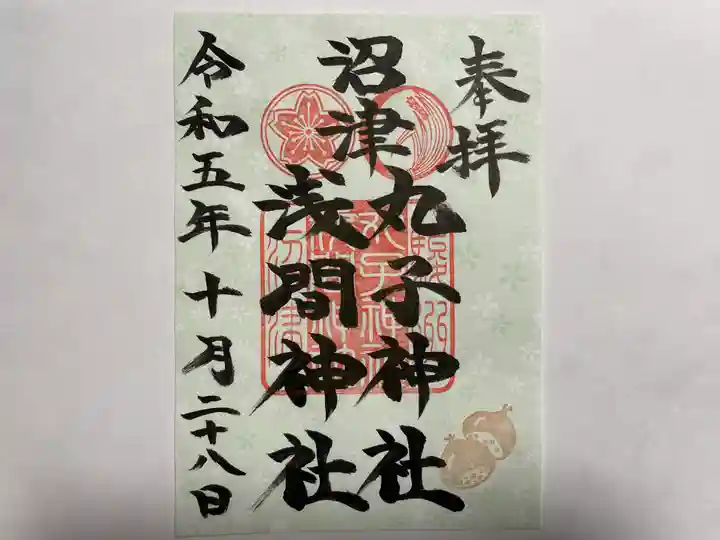 奉拝
沼津
丸子神社
浅間神社
令和五年十月二十八日